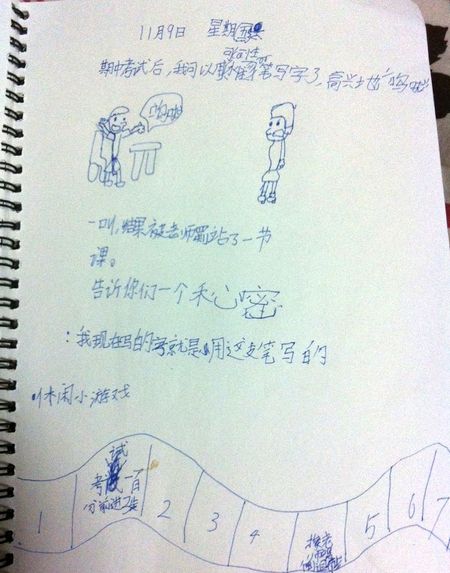 11月9日 星期五
期中考试后,我可以用水性笔写字了,高兴地“呜啦
一叫,结果被老师罚站了一节
课。
告诉你们一个秘密
:我现在写的字就是用这支笔写的
休闲小游戏
1
考试一百
分前进2步
2
3
4
5
6
7